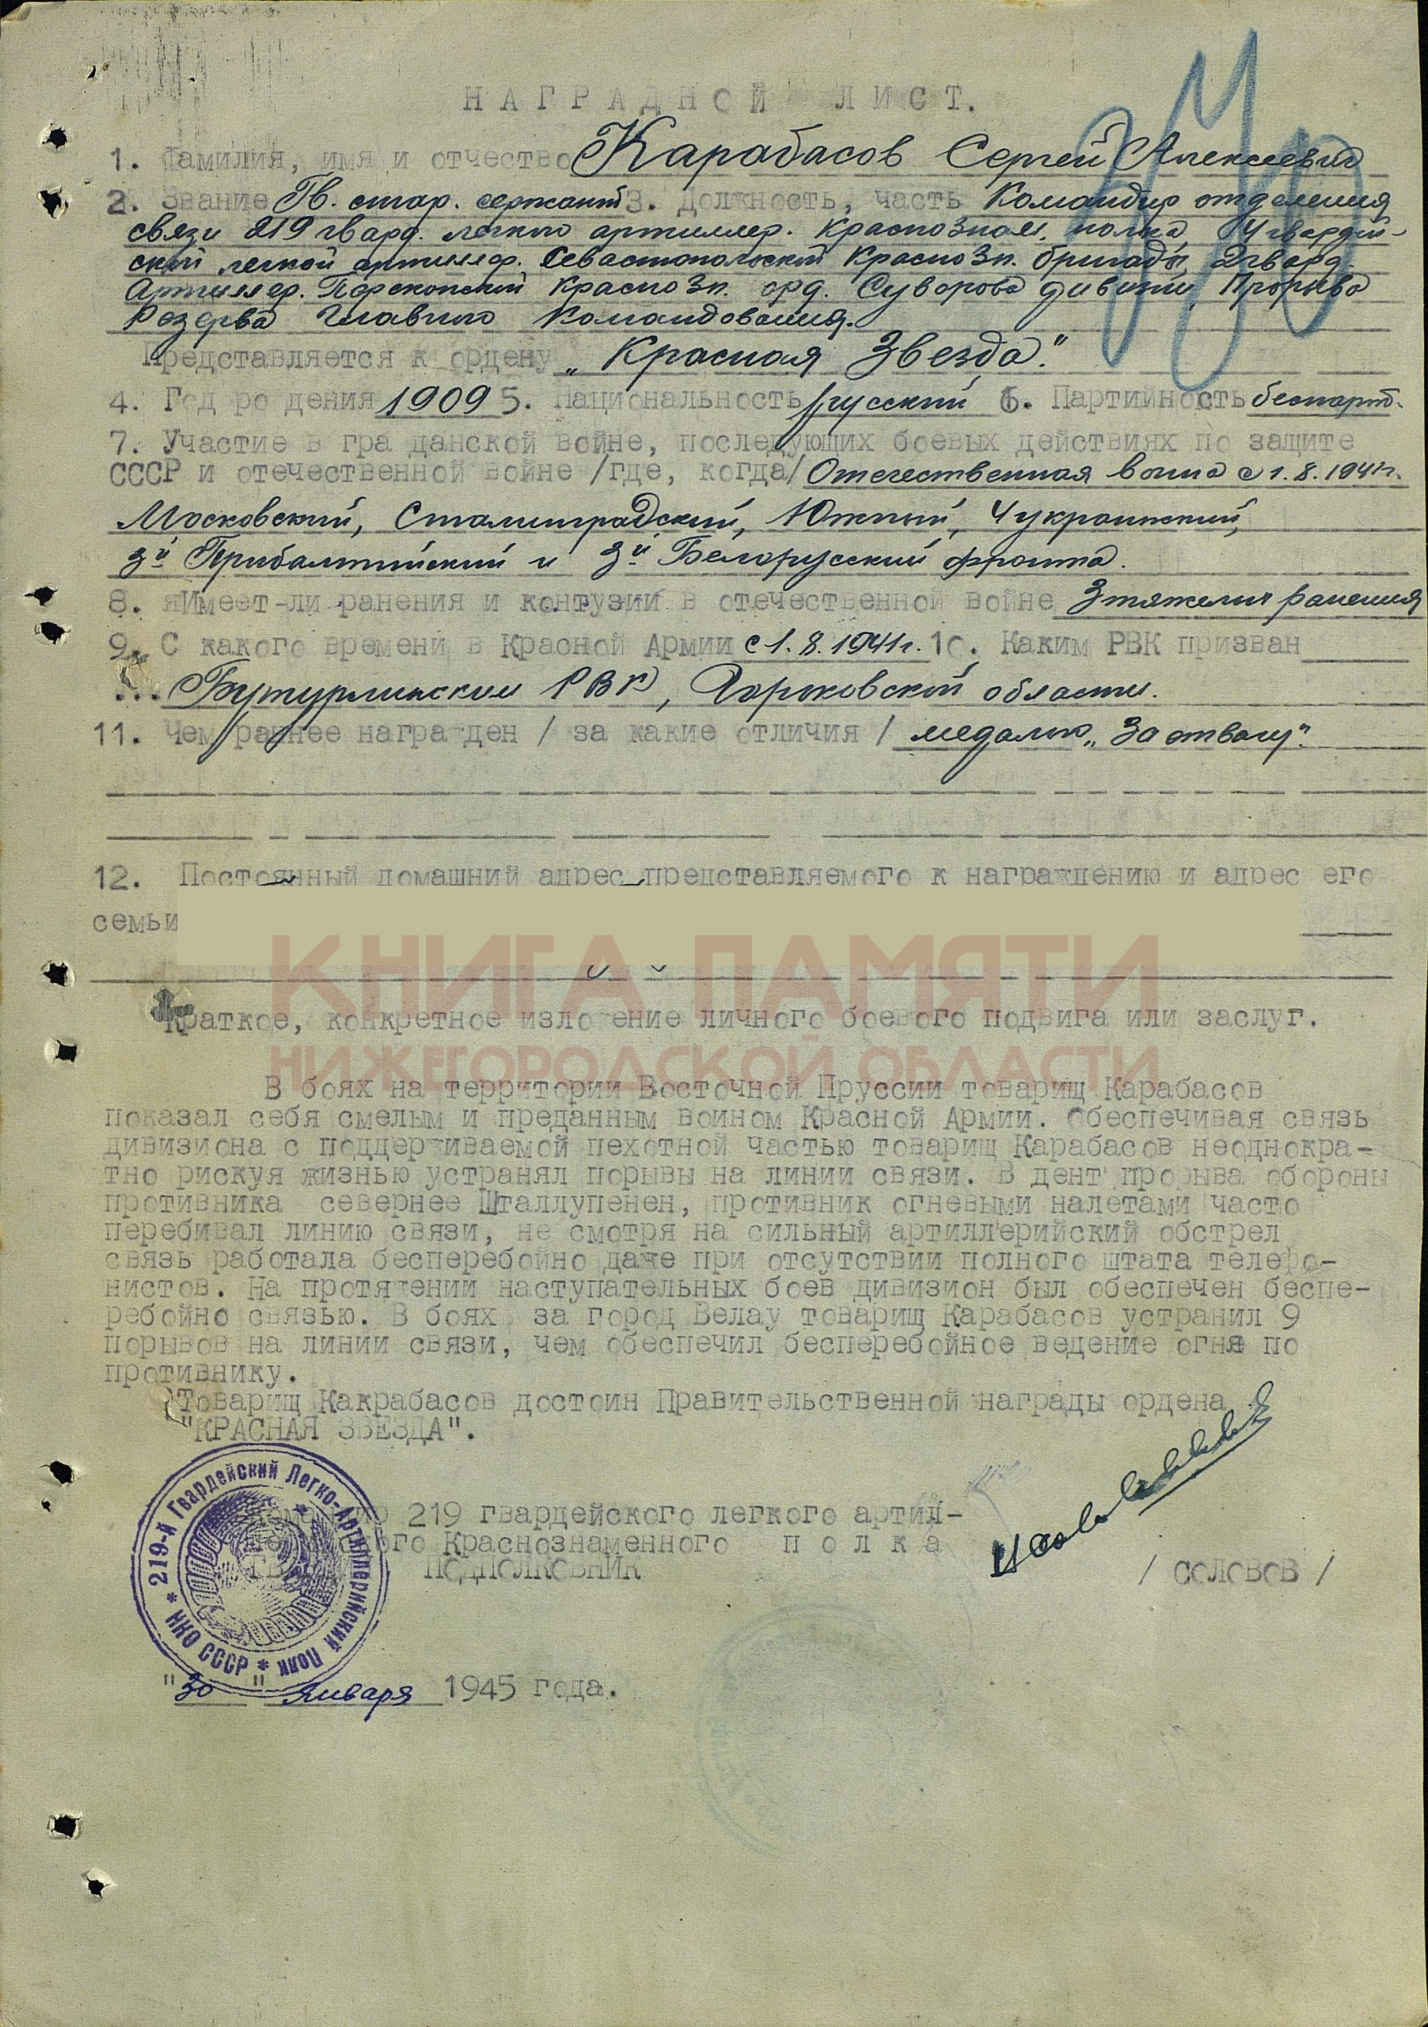 НАГРАДНОЙ ЛИСТ.
1. Фамилия, имя и отчество Карабасов Сергей Алексеевич
2. Звание Гв. стар. сержант 3. Должность, часть Командир отделения
связи 219 гвард. легкого артиллер. Краснознам. полка, 4 гвардей-
ской легкой артиллер. Севастопольской Краснозн. бригады, 2 гвард.
Артиллер. Перекопской Краснозн. орд. Суворова дивизии Прорыва
Резерва Главного Командования.
Представляется к ордену „Красная Звезда".
4. Год ро дения 1909 5. Национальность русский 6. Партийность беспарт.
7. Участие в гра данской войне, последующих боевых действиях по защите
СССР и отечественной войне /где, когда/ Отечественная война с 1.8.1941г.
Московский, Сталинградский, Южный, 4 украинский,
3й Прибалтийский и 3й Белорусский фронта.
8. яИмеет-ли ранения и контузии в отечественной войне 3 тяжелых ранения
9. С какого времени в Красной Армии с 1.8.1941г. 10. Каким РВК призван
... Бутурлинским РВК, Горьковской области.
11. Чем раннее награжден / за какие отличия / медалью „За отвагу".
12. Постоянный домашний адрес представляемого к награждению и адрес его
семьи
КНИГА ПАМЯТИ
Краткое, конкретное изложение личного боевого подвига или заслуг.
НИЖЕГОРОДСКОЙ ОБЛАСТИ
В боях на территории Восточной Пруссии товарищ Карабасов
показал себя смелым и преданным воином Красной Армии. Обеспечивая связь
дивизиона с поддерживаемой пехотной частью товарищ Карабасов неоднокра-
тно рискуя жизнью устранял порывы на линии связи. В дент прорыва обороны
противника севернее Шталлупенен, противник огневыми налетами часто
перебивал линию связи, не смотря на сильный артиллерийский обстрел
связь работала бесперебойно даже при отсутствии полного штата телефо-
нистов. На протяжении наступательных боев дивизион был обеспечен беспе-
ребойно связью. В боях за город Велау товарищ Карабасов устранил 9
порывов на линии связи, чем обеспечил бесперебойное ведение огня по
противнику.
Товарищ Какрабасов достоин Правительственной награды ордена
"КРАСНАЯ ЗВЕЗДА".
219 гвардейского легкого артил-
Краснознаменного полка
ПОДПОЛКОВНИК / СОЛОВОВ /
219-й Гвардейский Легко-Артиллерийский Полк * НКО СССР *
"30" января 1945 года.